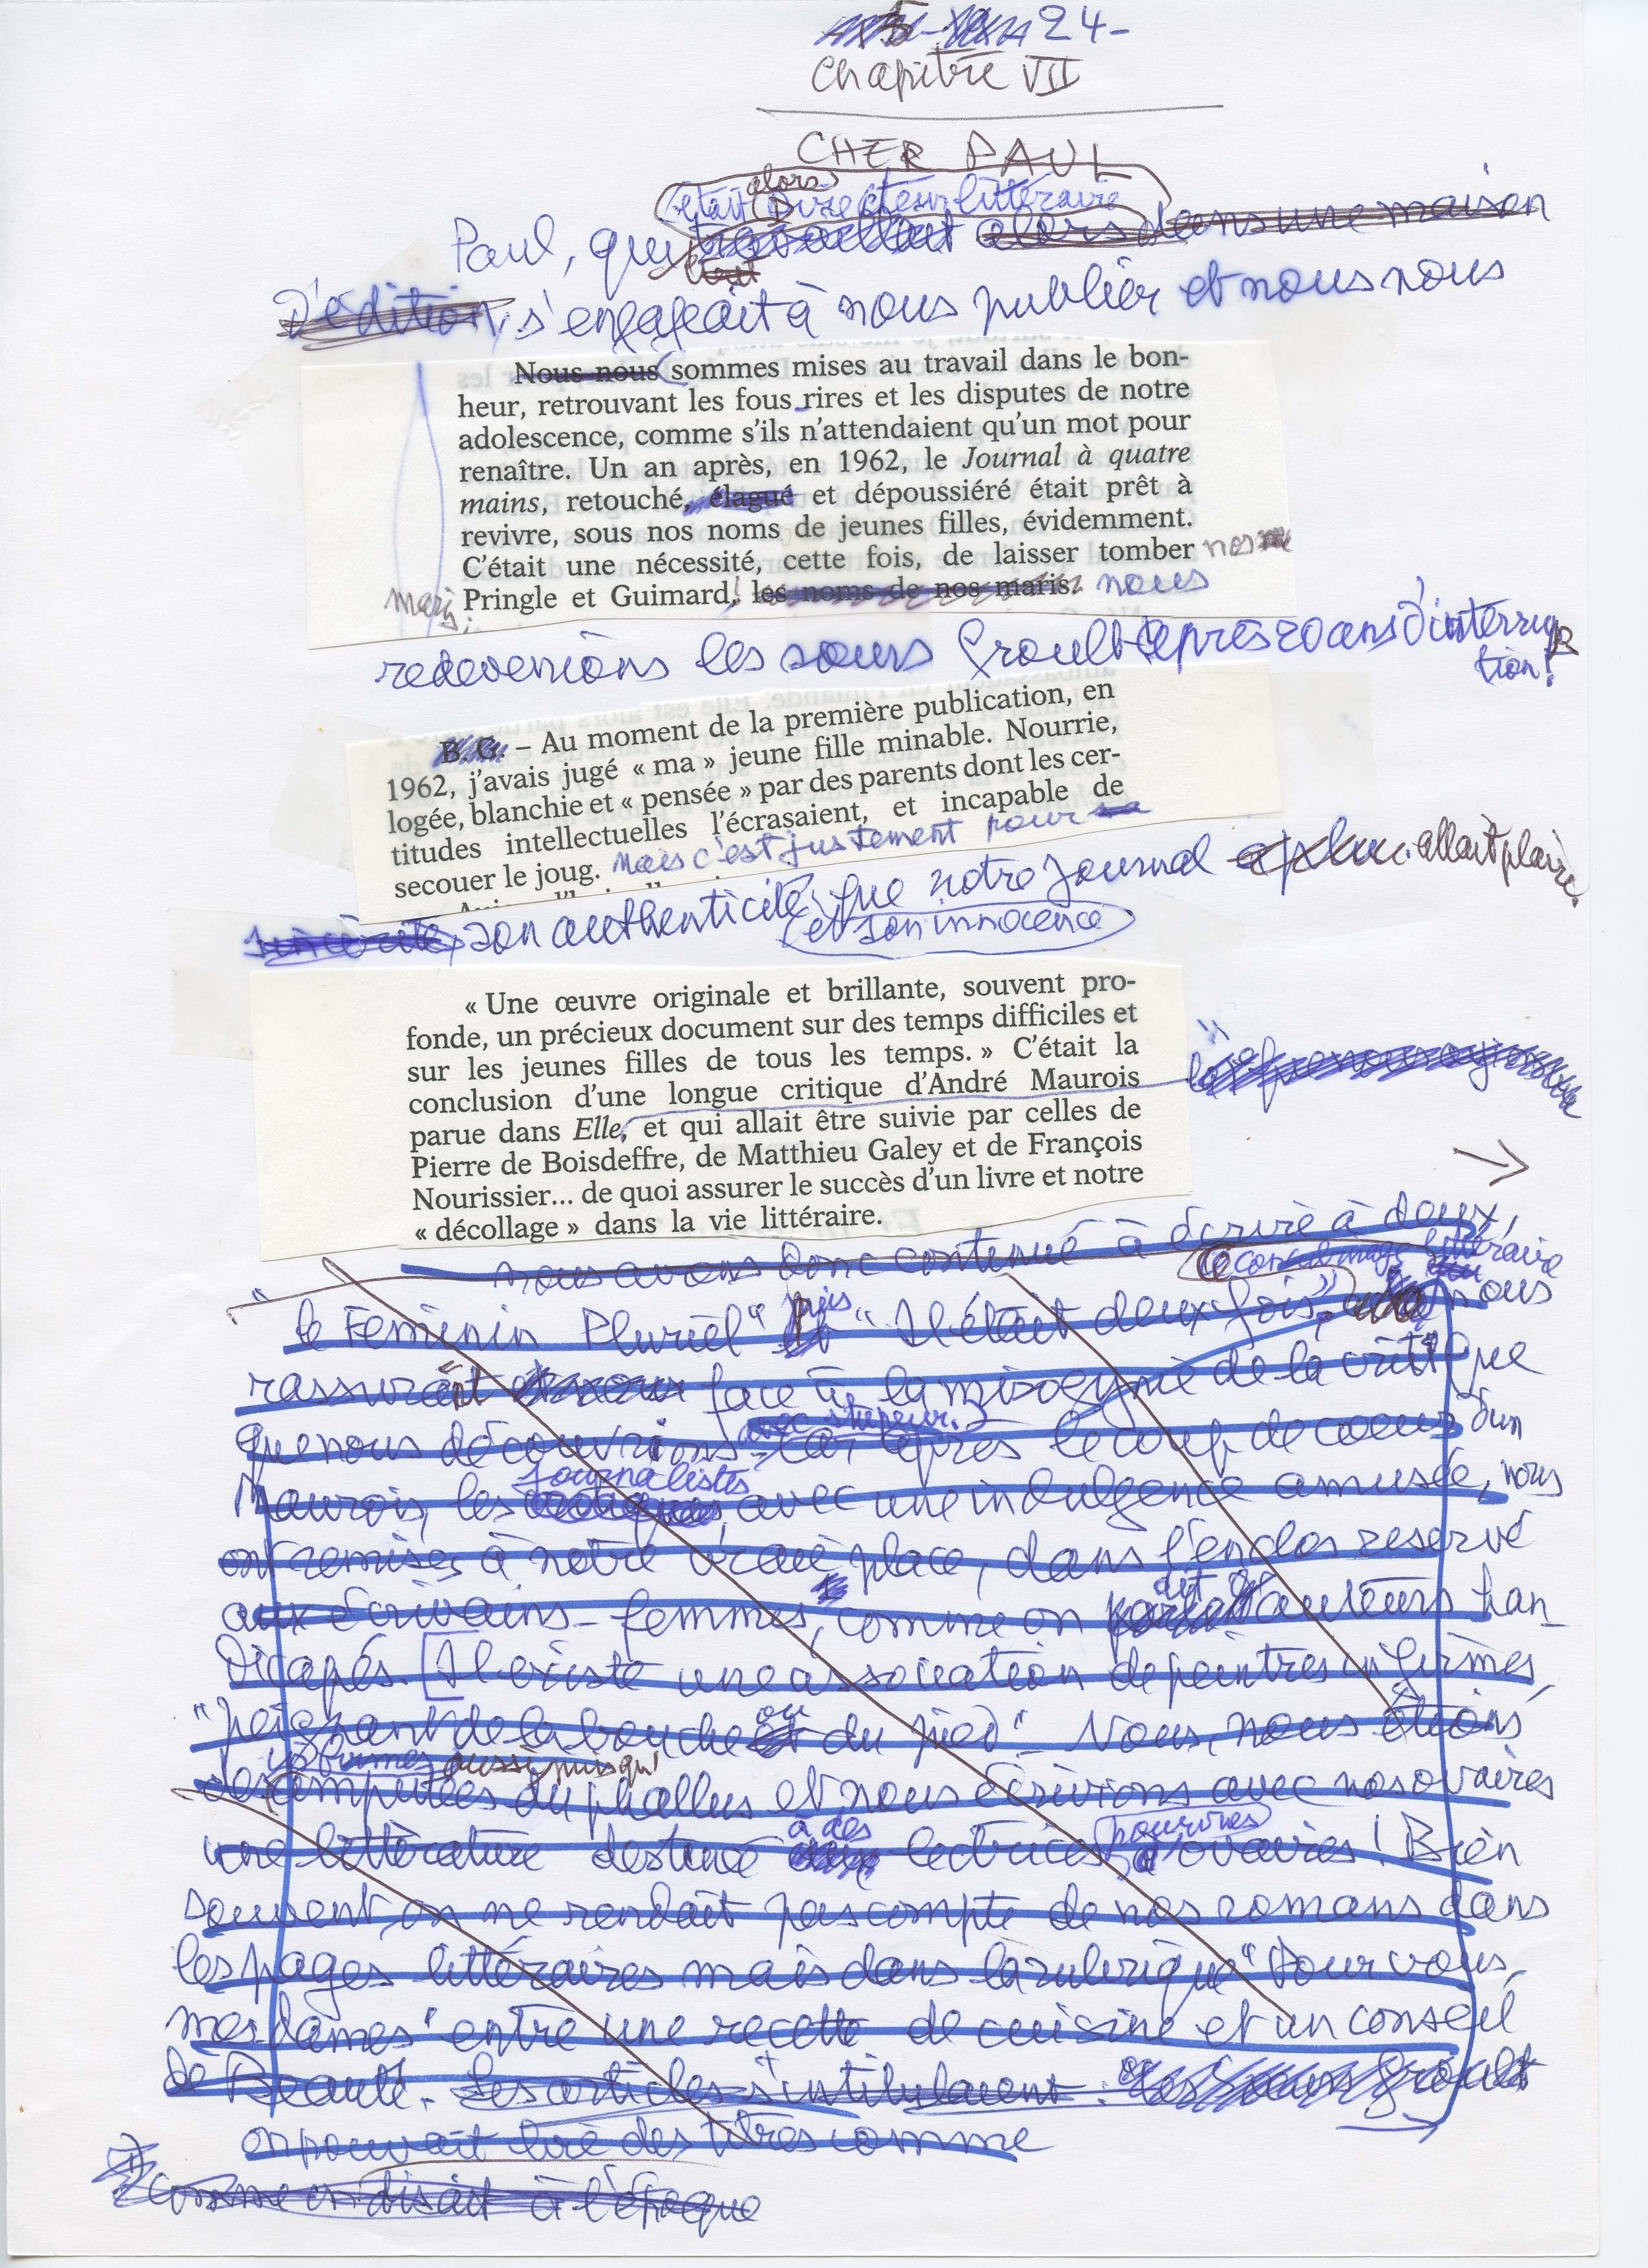 24-
Chapitre VII
CHER PAUL
alors
était Directeur littéraire
Paul, qui travaillait alors dans une maison
tout
d'édition, s'engageait à nous publier et nous nous
Nous nous sommes mises au travail dans le bon-
heur, retrouvant les fous rires et les disputes de notre
adolescence, comme s'ils n'attendaient qu'un mot pour
renaître. Un an après, en 1962, le Journal à quatre
mains, retouché, élagué et dépoussiéré était prêt à
revivre, sous nos noms de jeunes filles, évidemment.
C'était une nécessité, cette fois, de laisser tomber nos
maris, Pringle et Guimard, les noms de nos maris. nous
redevenions les sœurs Groult après 20 ans d'interrup
tion!
B. G. – Au moment de la première publication, en
1962, j'avais jugé « ma » jeune fille minable. Nourrie,
logée, blanchie et « pensée » par des parents dont les cer-
titudes intellectuelles l'écrasaient, et incapable de
secouer le joug. Mais c'est justement pour sa
sincérité, son authenticité que notre Journal a plu. allait plaire.
et son innocence
« Une œuvre originale et brillante, souvent pro-
fonde, un précieux document sur des temps difficiles et
sur les jeunes filles de tous les temps. » C'était la
conclusion d'une longue critique d'André Maurois
parue dans Elle, et qui allait être suivie par celles de
Pierre de Boisdeffre, de Matthieu Galey et de François
Nourissier... de quoi assurer le succès d'un livre et notre
« décollage » dans la vie littéraire.
nous avons donc continué à écrire à deux,
ce concubinage littéraire
"le Féminin Pluriel" puis "Il était deux fois", nous
rassurant et nous face à la misogynie de la critique
avec stupeur.
que nous découvrions car après le coup de coeur d'un
journalistes
Maurois, les critiques, avec une indulgence amusée, nous
ont remises à notre vraie place, dans l'enclos reservé
dit
aux écrivains-femmes, comme on parlait auteurs han-
dicapés. Il existe une association de peintres infirmes
ou
"peignant de la bouche et du pied". Nous, nous étions
infirmes aussi puisqu'
des amputées du phallus et nous écrivions avec nos ovaires
à des pourvues
une littérature destinée aux lectrices d'ovaires! Bien
souvent, on ne rendait pas compte de nos romans dans
les pages littéraires mais dans la rubrique "Pour vous,
mesdames" entre une recette de cuisine et un conseil
de Beauté. Les articles s'intitulaient: "Les Soeurs Groult
on pouvait lire des titres comme
comme on disait à l'époque